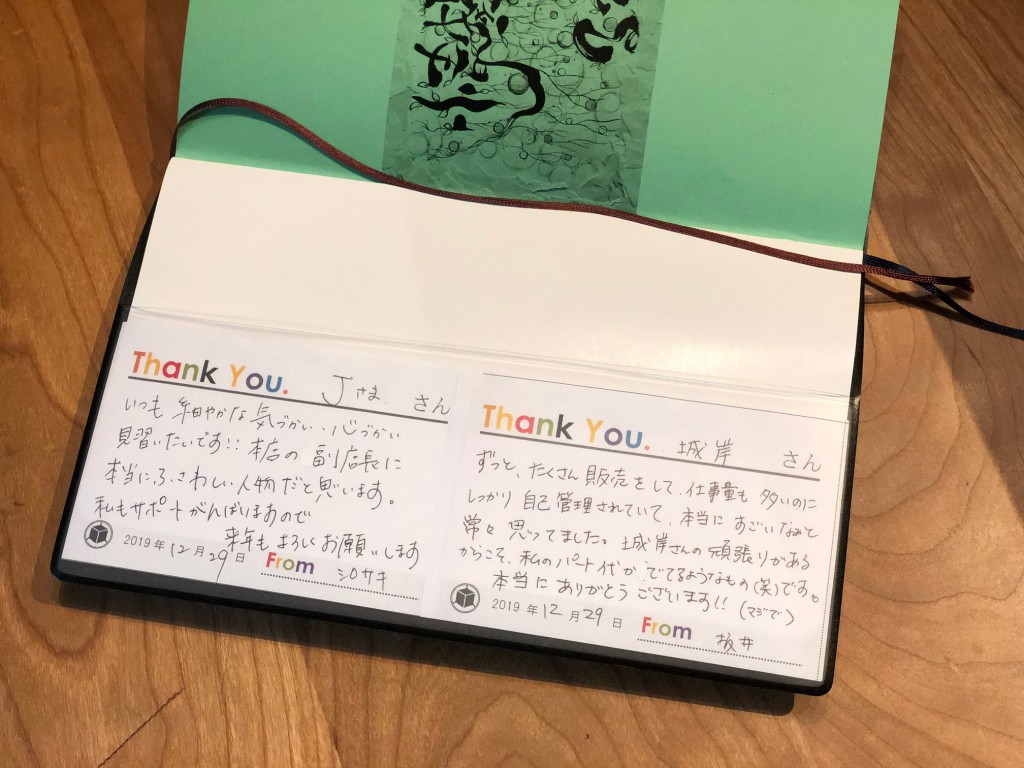 Thank You. Jさま さん
いつも 細やかな気づかい・心づかい
見習いたいです!! 本店の 副店長に
本当にふさわしい人物だと思います。
私もサポートがんばりますので
来年もよろしくお願いします
2019年12月29日 From シロサキ
Thank You. 城岸 さん
ずっと、たくさん販売をして、仕事量も 多いのに
しっかり 自己管理されていて、本当に すごいなあと
常々 思ってました。城岸さんの頑張りがある
からこそ、私のパート代が でてるようなもの(笑)です。
本当に ありがとう ございます!! (マジで)
2019年12月29日 From 板井